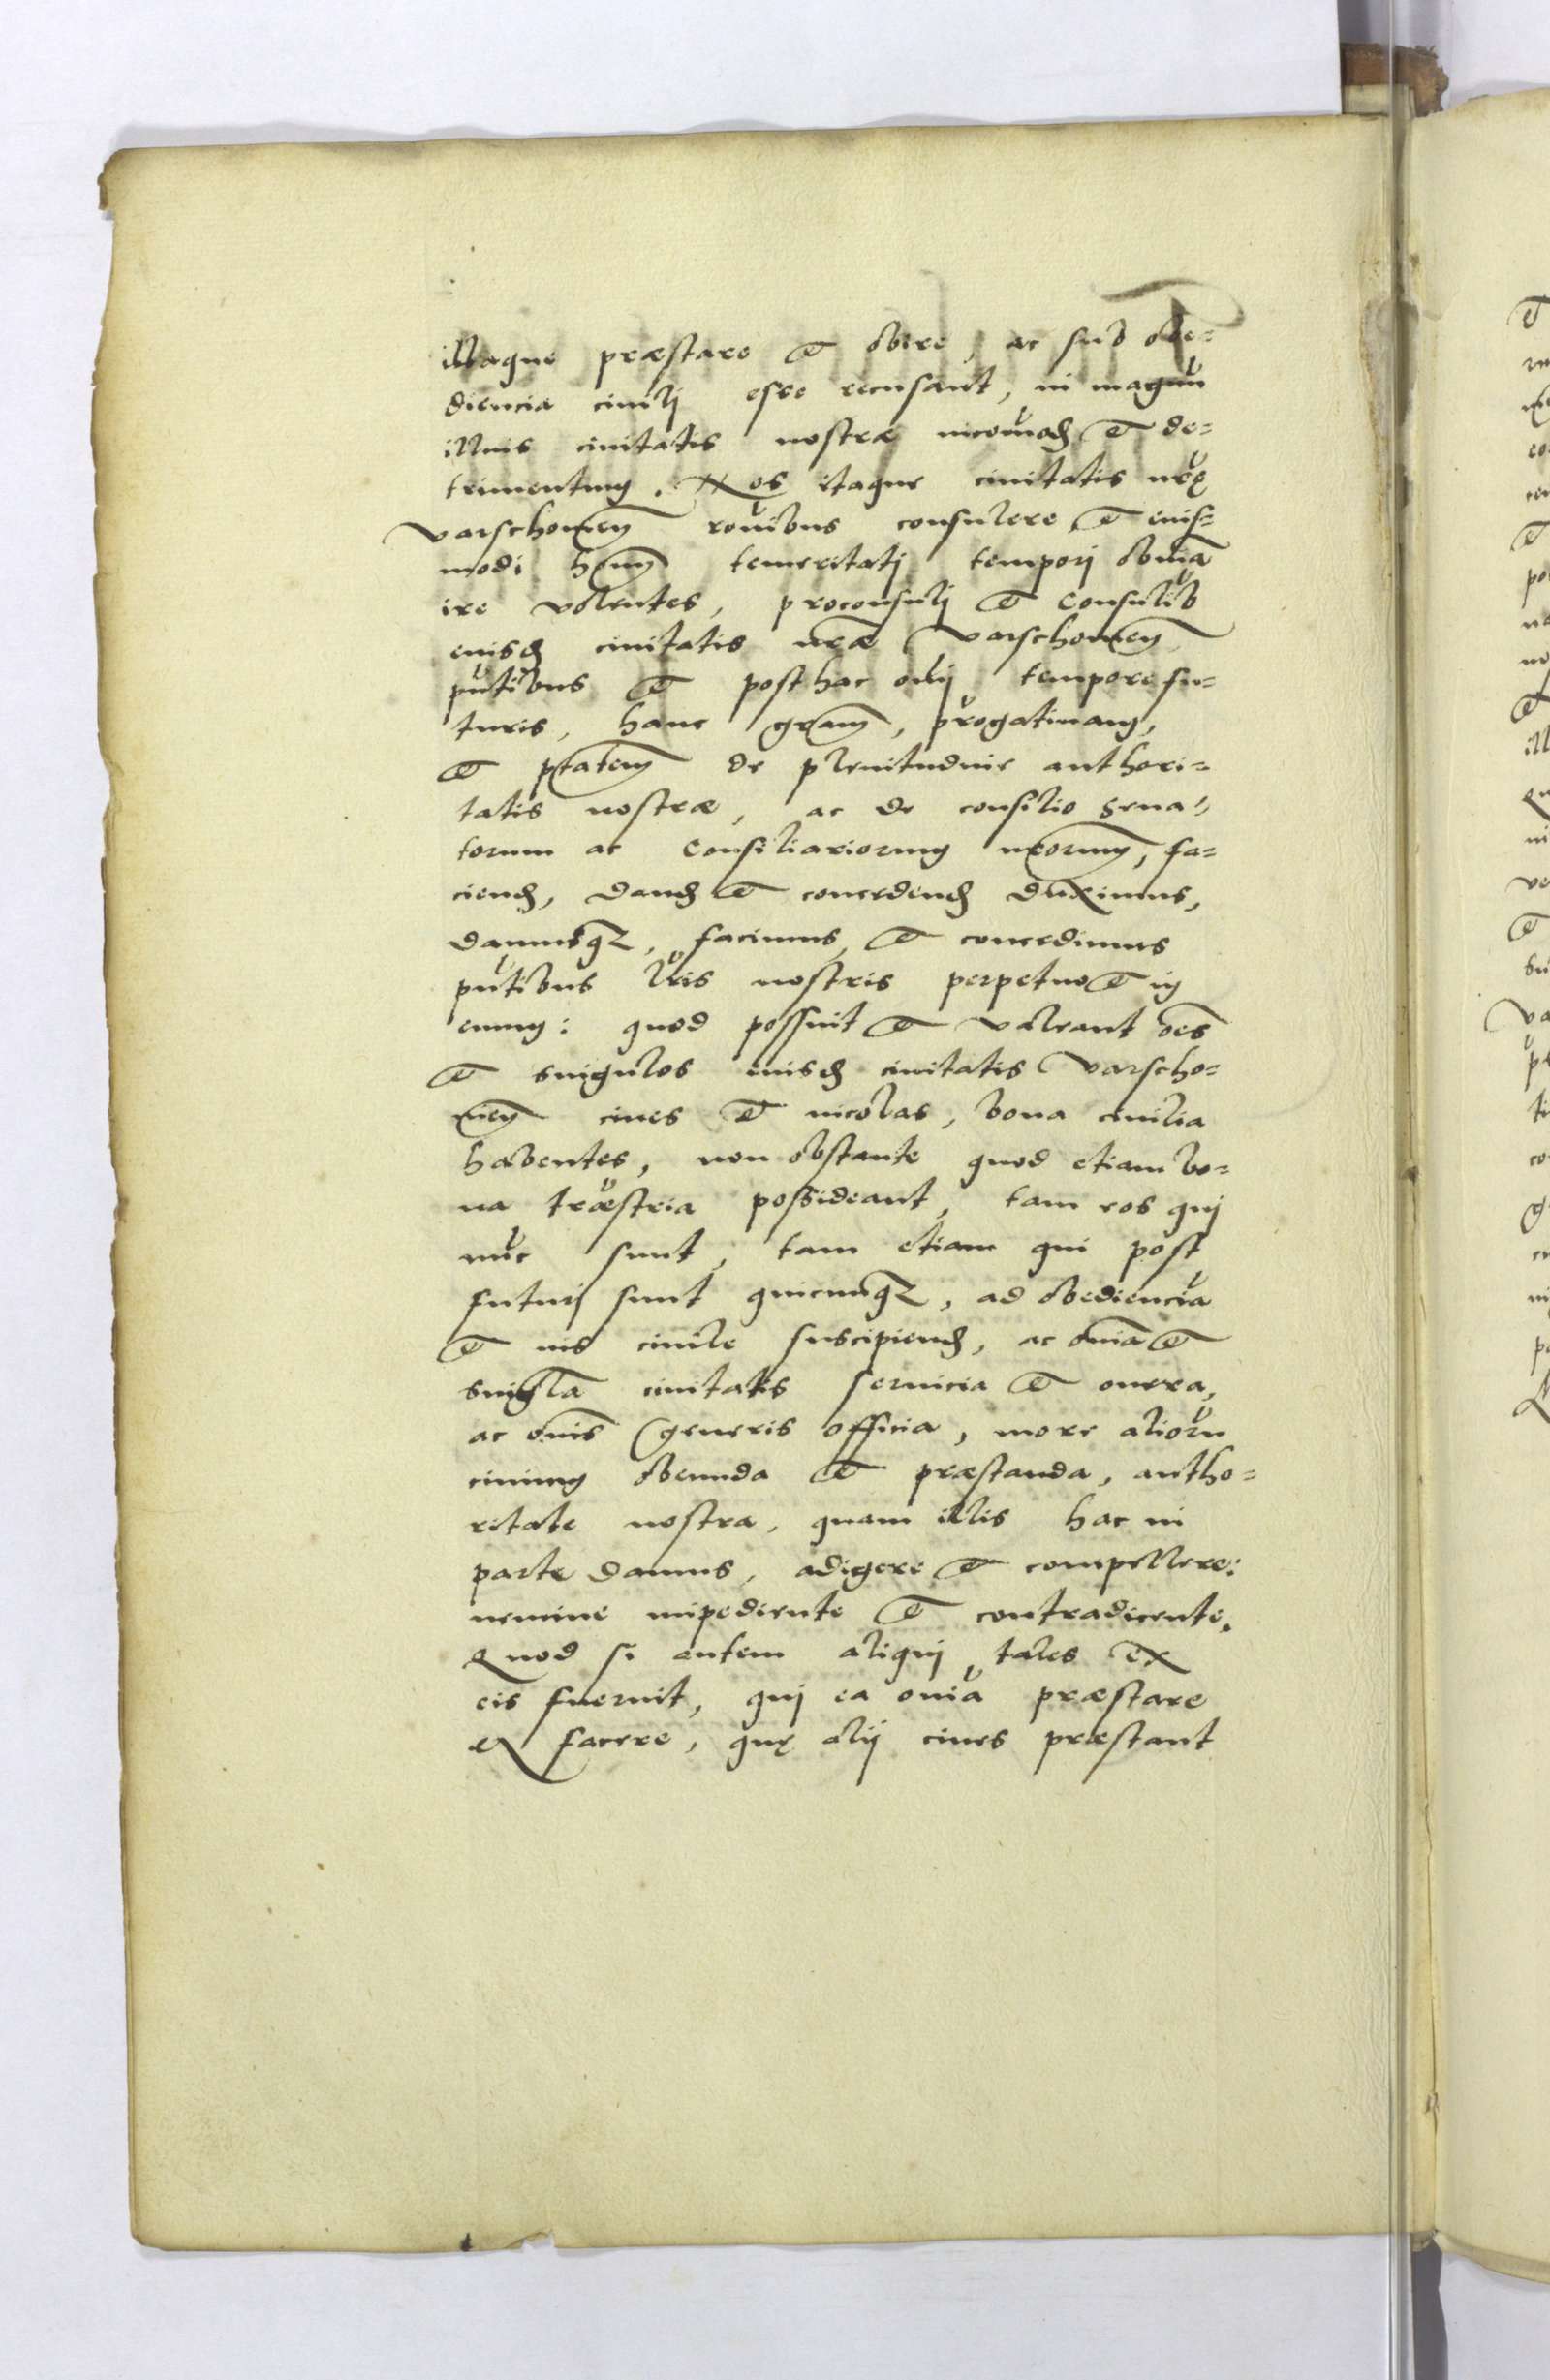 illaque præstare et obire, ac sub obe=
diencia ciuilj esse recusant, in magnũ
illius ciuitatis nostræ incom̃od et de=
trimentum. Nos itaque ciuitatis nrę̃
varschouien̄ cõmĩbus consulere et euis=
modi hom̃ temeritatj temporj obuiã
ire volentes, proconsulj et consulib̃
euisd ciuitatis nr̃æ varschouien̄
pñtibus et posthac om̃j tempore fu=
turis, hanc gram̃, prõgatiuam,
et ptatem̃ de plenitudine authori=
tatis nostræ, ac de consilio Sena=
torum ac Consiliariorum nrorum̃, fa=
ciend, dand et concedend duximus,
damusq₃, facimus, et concedimus
pñtibus lr̃is nostris perpetuo et in
euum: quod possint et valeant oẽs
et singulos euisd ciuitatis varscho=
uien̄ ciues et incolas, bona ciuilia
habentes, non obstante quod etiam bo=
na tr̃æstria possideant, tam eos quj
nũc sunt, tam etiam qui post
futurj sunt quicunq₃, ad obedienciã
et ius ciuile suscipiend, ac om̃ia et
singl̃a ciuitatis seruicia et onera,
ac om̃is generis officia, more aliorũ
ciuium obeunda et præstanda, autho=
ritate nostra, quam illis hac in
parte damus, adigere et compellere:
nemine impediente et contradicente.
Quod si autem aliquj tales ex
eis fuerint, quj ea om̃ia præstare
et facere, quę alij ciues præstant